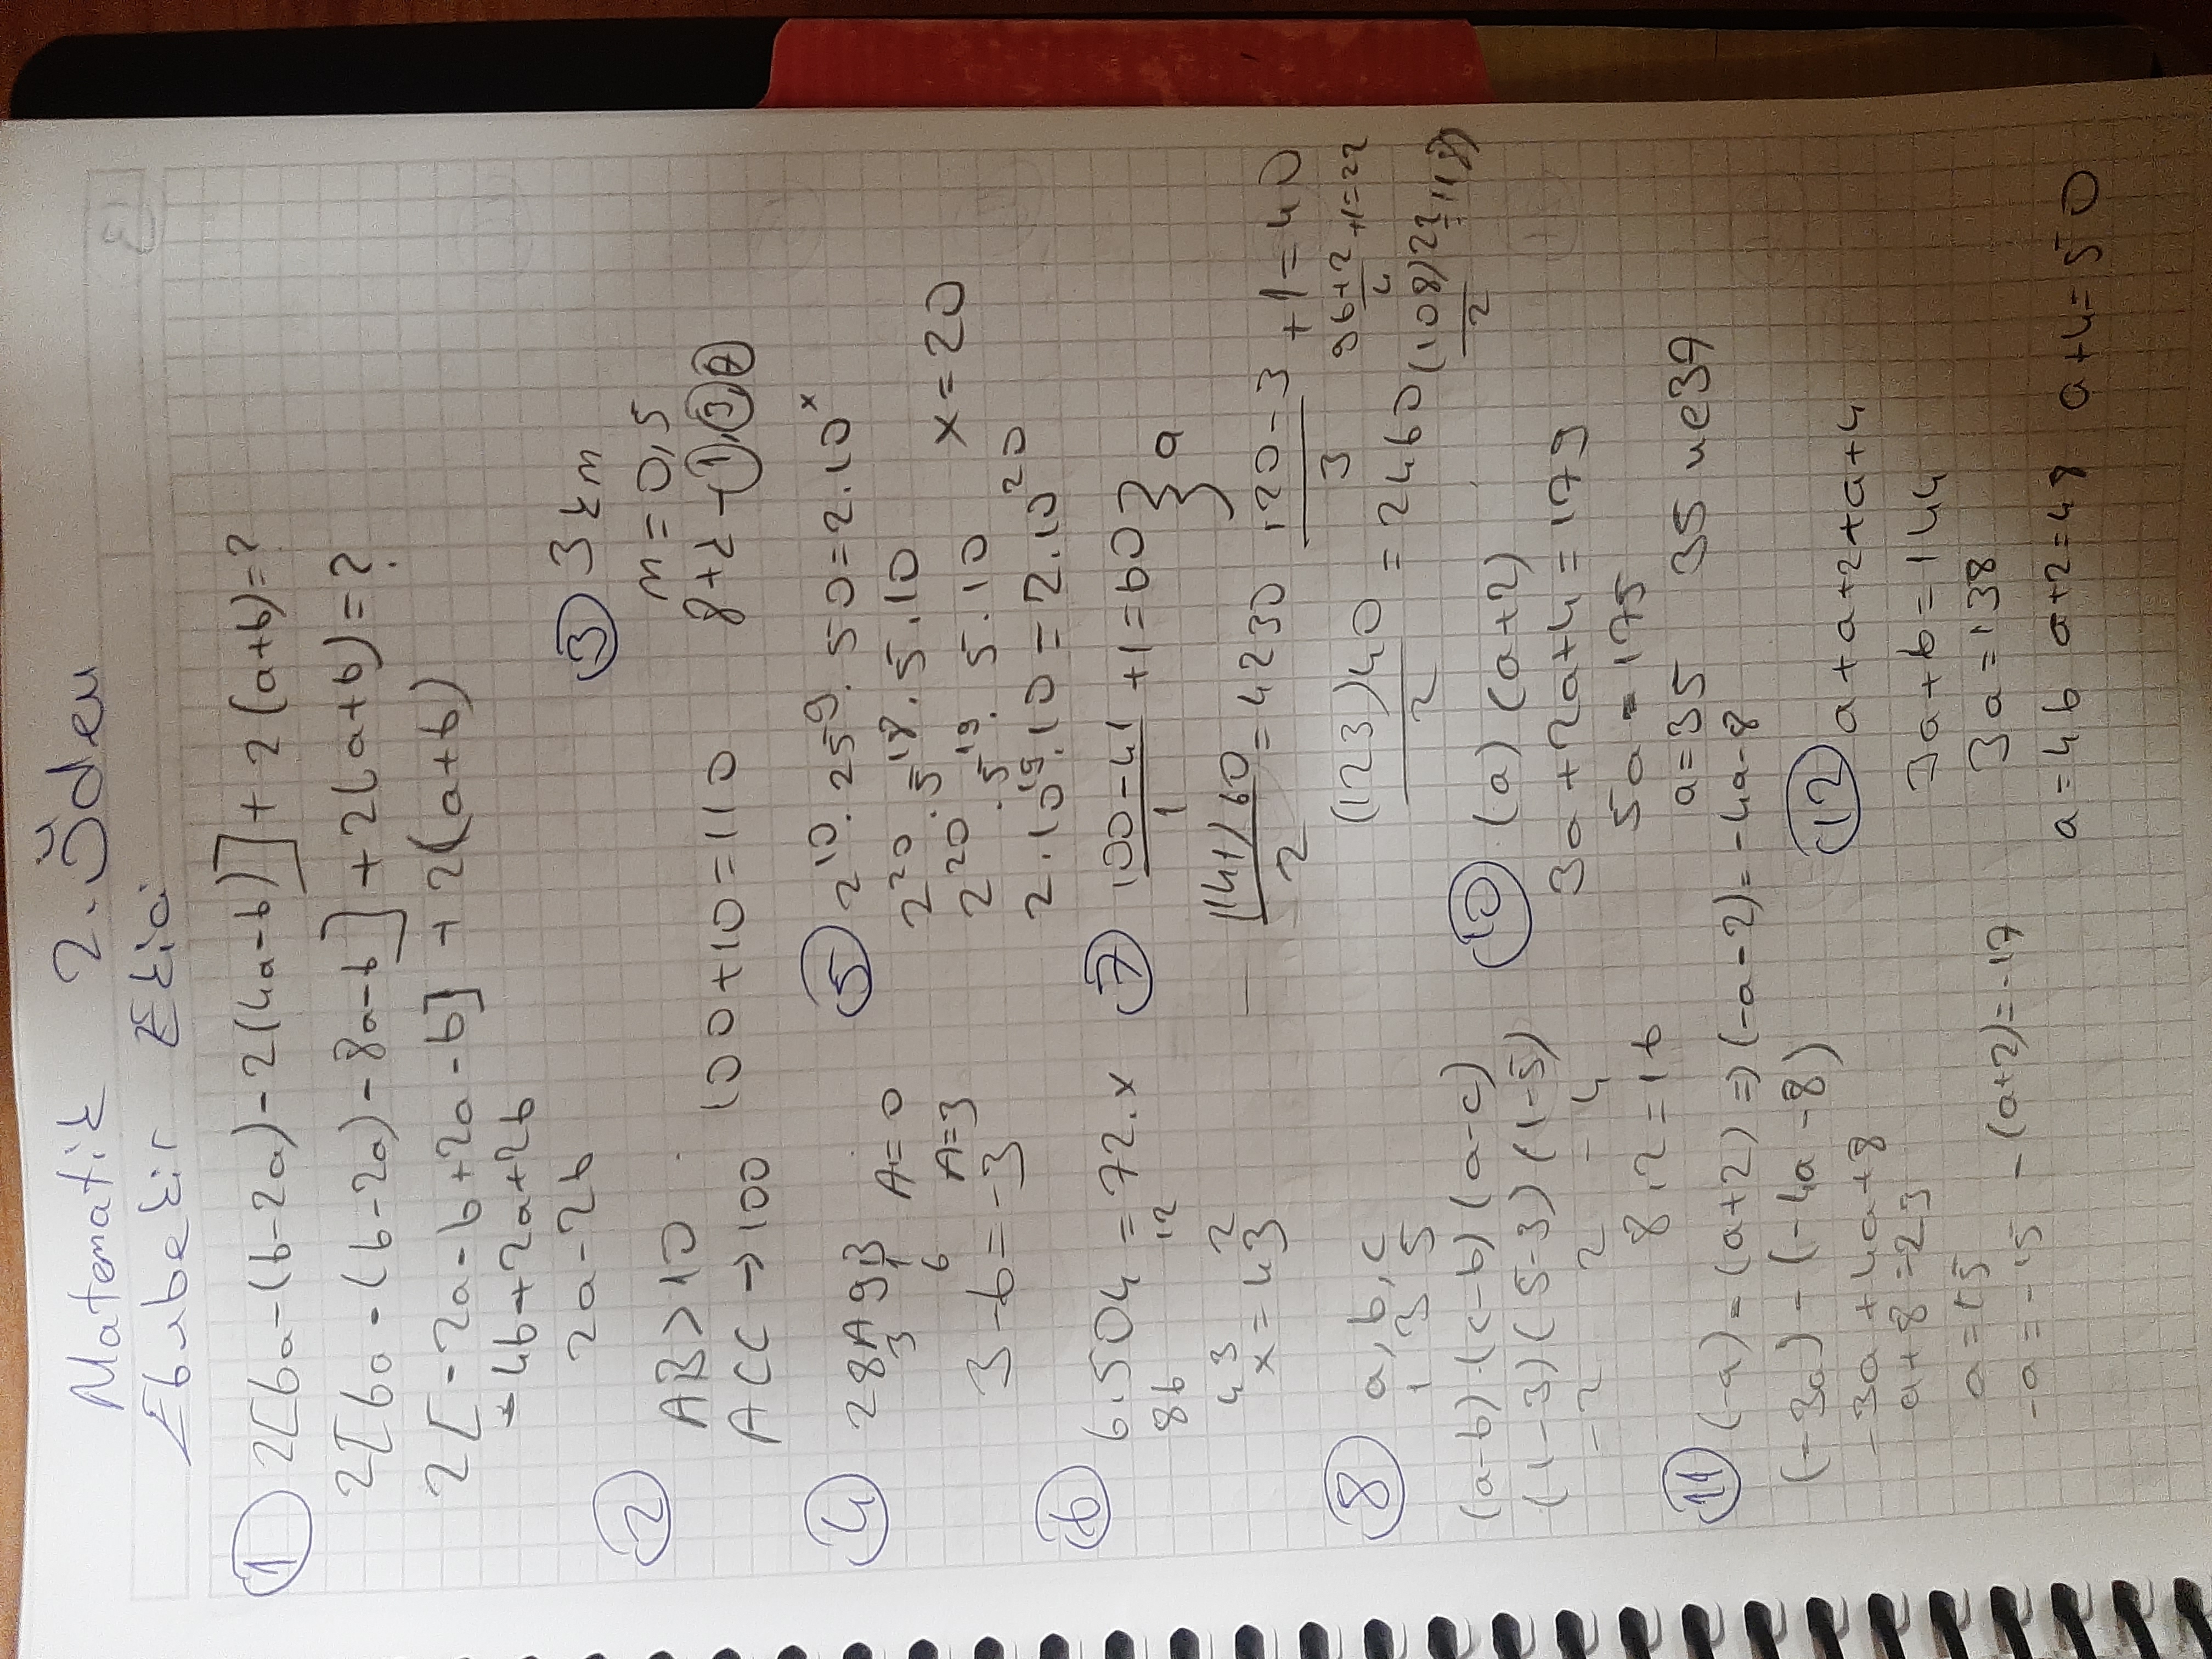 Matematik 2. Ödev
Ebubekir Ekici
1 2[6a-(b-2a)-2(4a-b)]+2(a+b)=?
2[6a-(b-2a)-8a-b]+2(a+b)=?
2[-2a-b+2a-b]+2(a+b)
-4b+2a+2b
2a-2b
2
AB>10
ACC→100 100+10=110
3 3km
m=0,5
8+k→1,3,7
4 28A9B
3 1 A=0
6 A=3
3-6=-3
5 2^10.25^9.50=2.10^x
2^20.5^18.5.10
2^20.5^19.5.10 x=20
2.10^19.10=2.10^20
6 6.504=72.x
86 12
43 2
x=43
7 (100-41)/1+1=60 } a
(141)60/2=4230
(120-3)/3+1=40
(123)40/2=2460
(96+2)/4+1=22
(108)22/2
8 a,b,c
1 3 5
(a-b).(c-b)(a-c)
(1-3)(5-3)(1-5)
-2 2 -4
8.2=16
10 (a)(a+2)
3a+2a+4=179
5a=175
a=35 35 ve37
11 (-a)-(a+2)⇒(-a-2)=-4a-8
(-3a)-(-4a-8)
-3a+4a+8
a+8=23
a=15
-a=-15 -(a+2)=-17
12 a+a+2+a+4
3a+6=144
3a=138
a=46 a+2=48 a+4=50